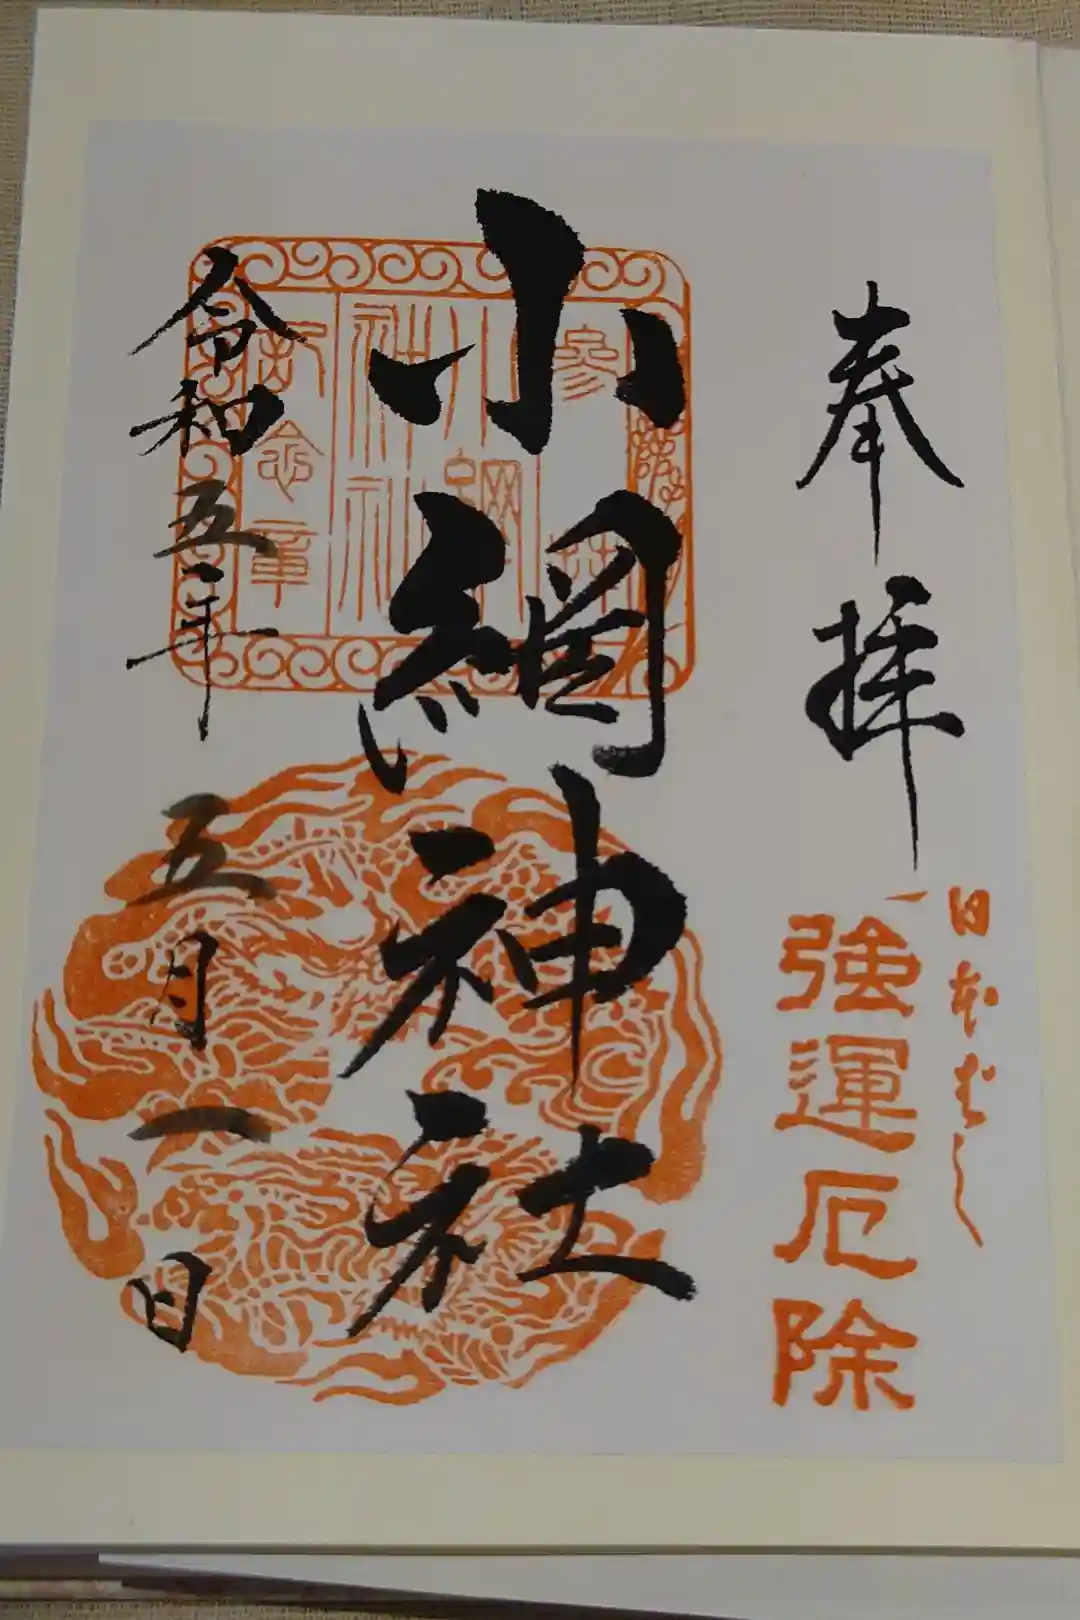 奉拝
日本ばし
強運厄除
小網神社
参拝
小網
神社
記念章
令和五年五月一日